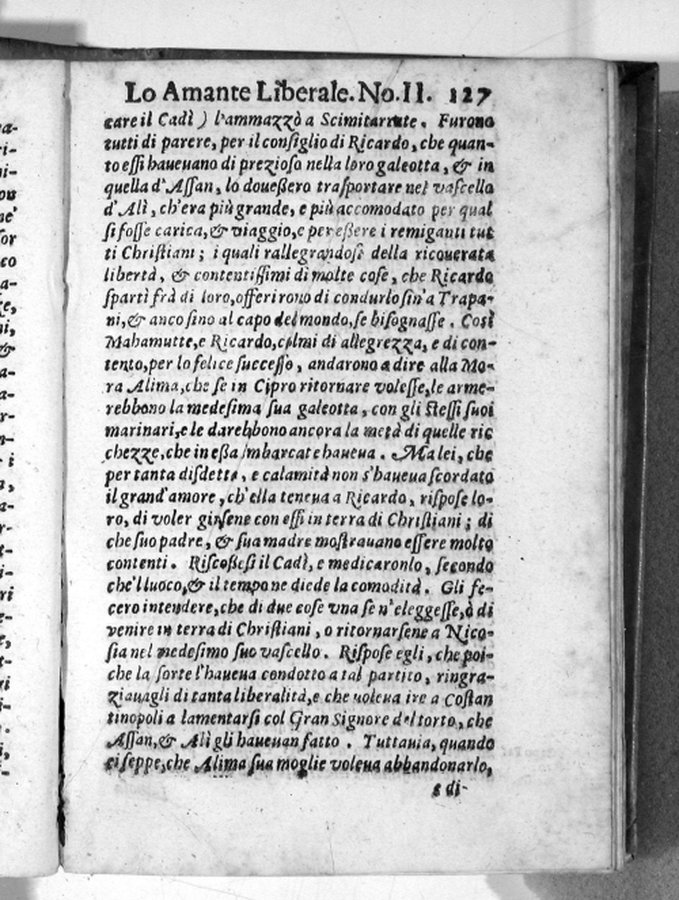 Lo Amante Liberale. No. II. 127
care il Cadì) l'ammazzò a Scimitarrate. Furono
tutti di parere, per il consiglio di Ricardo, che quan-
to eſſi haueuano di prezioſo nella loro galeotta, & in
quella d'Aſſan, lo doueßero traſportare nel vaſcello
d'Alì, ch'era più grande, e più accomodato per qual
ſi foſſe carica, & viaggio, e per eßere i remiganti tut
ti Chriſtiani; i quali rallegrandoſi della ricouerata
libertà, & contentiſſimi di molte coſe, che Ricardo
ſpartì frà di loro, offerirono di condurlo ſin'a Trapa-
ni, & anco ſino al capo del mondo, ſe biſognaſſe. Così
Mahamutte, e Ricardo, colmi di allegrezza, e di con-
tento, per lo felice ſucceſſo, andarono a dire alla Mo-
ra Alima, che ſe in Cipro ritornare voleſſe, le arme-
rebbono la medeſima ſua galeotta, con gli ſteſſi ſuoi
marinari, e le darebbono ancora la metà di quelle ric
chezze, che in eßa imbarcate haueua. Ma lei, che
per tanta diſdetta, e calamità non s'haueua ſcordato
il grand'amore, ch'ella teneua a Ricardo, riſpoſe lo-
ro, di voler girſene con eſſi in terra di Chriſtiani; di
che ſuo padre, & ſua madre moſtrauano eſſere molto
contenti. Riſcoßeſi il Cadì, e medicaronlo, ſecondo
che'l luoco, & il tempo ne diede la comodità. Gli fe-
cero intendere, che di due coſe vna ſe n'eleggeſſe, ò di
venire in terra di Chriſtiani, o ritornarſene a Nico-
ſia nel medeſimo ſuo vaſcello. Riſpoſe egli, che poi-
che la ſorte l'haueua condotto a tal partito, ringra-
ziauagli di tanta liberalità, e che voleua ire a Coſtan
tinopoli a lamentarſi col Gran Signore del torto, che
Aſſan, & Alì gli haueuan fatto. Tuttauia, quando
ei ſeppe, che Alima ſua moglie voleua abbandonarlo,
e di-